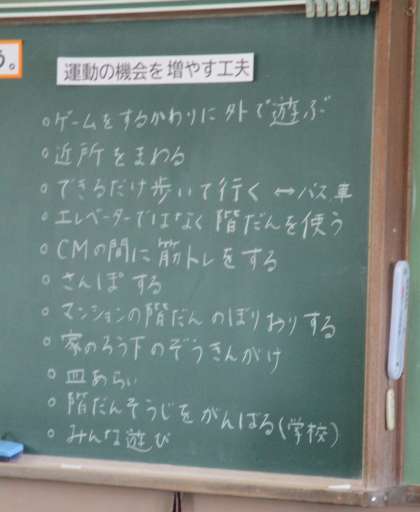 う。
運動の機会を増やす工夫
○ゲームをするかわりに外で遊ぶ
○近所をまわる
○できるだけ歩いて行く ↔バス 車
○エレベーターではなく階だんを使う
○CMの間に筋トレをする
○さんぽする
○マンションの階だんのぼりおりする
○家のろう下のぞうきんがけ
○皿あらい
○階だんそうじをがんばる(学校)
○みんな遊び